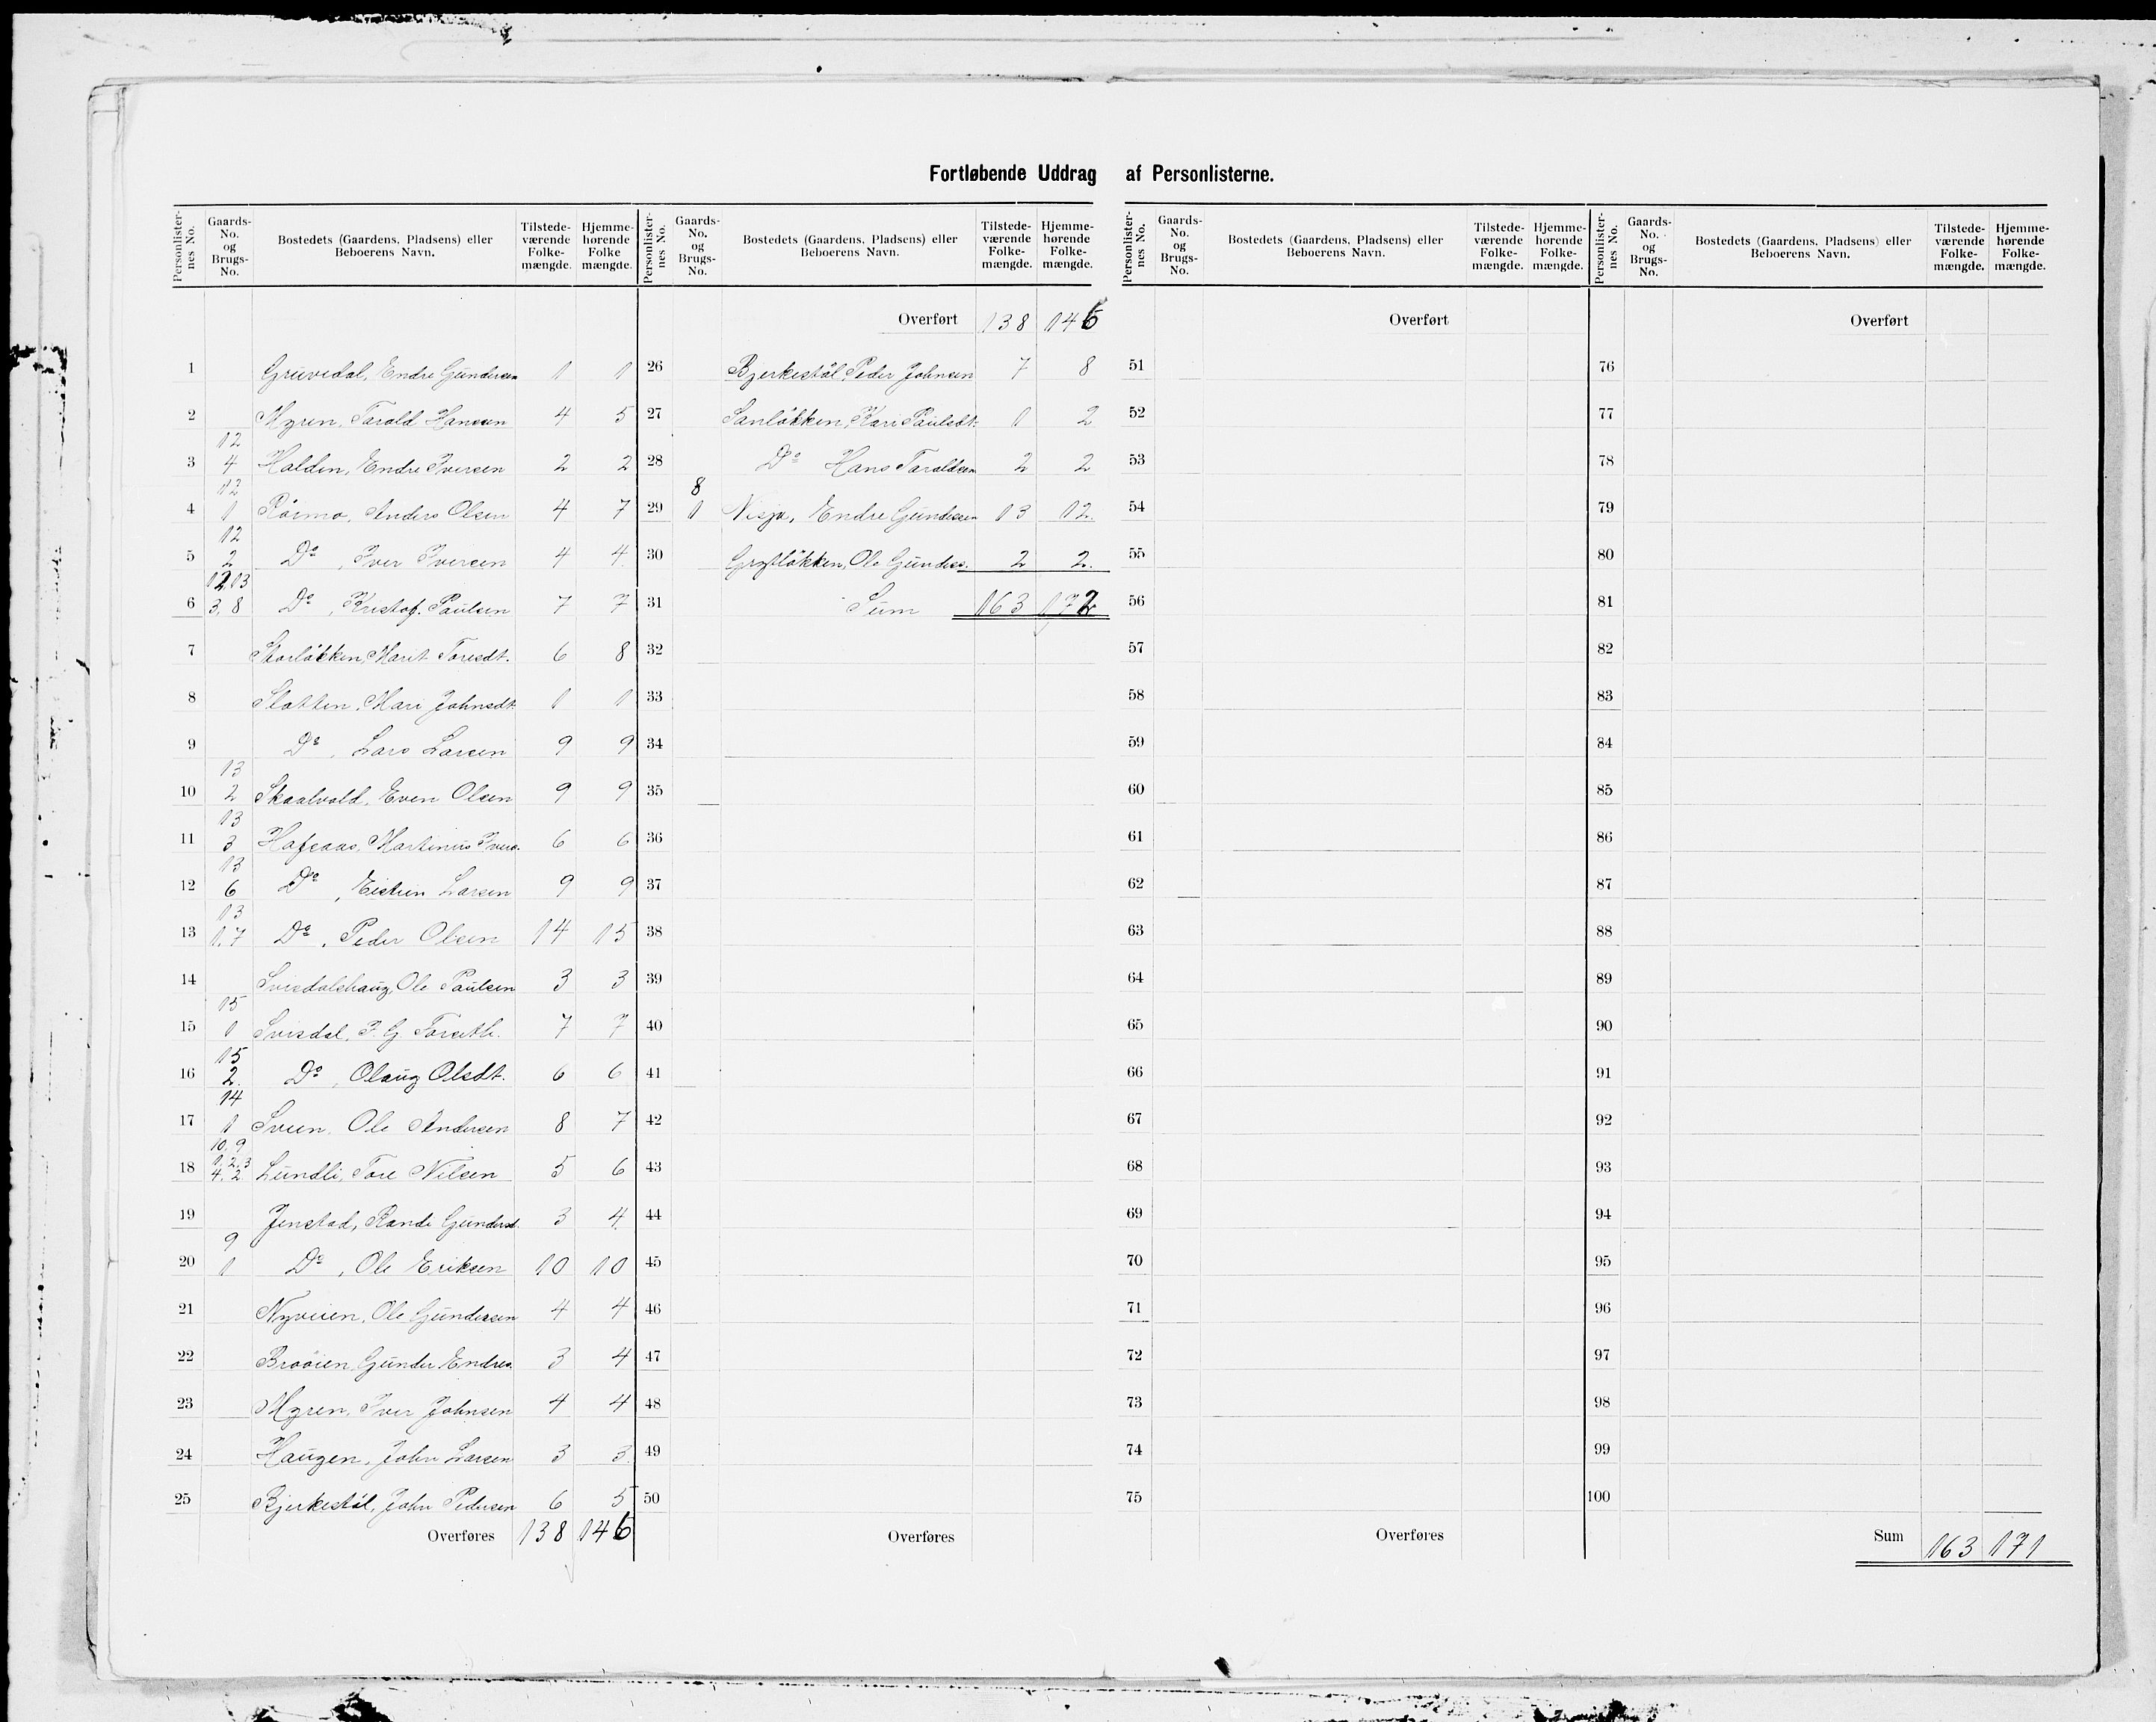 Fortløbende Uddrag af Personlisterne.
Personlisternes No. Gaards-No. og Brugs-No. Bostedets (Gaardens, Pladsens) eller Beboerens Navn. Tilstedeværende Folkemængde. Hjemmehørende Folkemængde.
1 Gruvedal, Endre Gundersen 1 1
2 Myren, Tarald Hansen 4 5
3 12 4 Halden, Endre Iversen 2 2
4 12 1 Rösmo, Anders Olsen 4 7
5 12 2 Do, Iver Iversen 4 4
6 12,13 3,8 Do, Kristof. Paulsen 7 7
7 Storløkken, Marit Toresdt. 6 8
8 Slotten, Mari Johnsdt. 1 1
9 Do, Lars Larsen 9 9
10 13 2 Skaalvold, Even Olsen 9 9
11 13 3 Hafsaas, Martinus Ivers. 6 6
12 13 6 Do, Eistein Larsen 9 9
13 13 1.7 Do, Peder Olsen 14 15
14 Svisdalshaug, Ole Paulsen 3 3
15 15 1 Svisdal, P. G. Forseth. 7 7
16 15 2. Do, Olaug Olsdt. 6 6
17 14 1 Sveen, Ole Andersen 8 7
18 10. 9 1.2.3 4. 2. Lundli, Tore Nilsen 5 6
19 Jenstad, Rande Gundersd. 3 4
20 9 1 Do, Ole Eriksen 10 10
21 Nyveien, Ole Gundersen 4 4
22 Brøøien, Gunder Endres. 3 4
23 Myren, Iver Johnsen 4 4
24 Haugen, John Larsen 3 3
25 Bjerkestöl, John Pedersen 6 5
Overføres 138 146
Personlisternes No. Gaards-No. og Brugs-No. Bostedets (Gaardens, Pladsens) eller Beboerens Navn. Tilstedeværende Folkemængde. Hjemmehørende Folkemængde.
Overført 138 146
26 Bjerkestöl, Peder Johnsen 7 8
27 Sanløkken, Kari Paulsdt. 1 2
28 Do Hans Taraldsen 2 2
29 8 1 Nisja, Endre Gundersen 13 12.
30 Grytløkken, Ole Gunders. 2 2.
31 Sum 163 172
32
33
34
35
36
37
38
39
40
41
42
43
44
45
46
47
48
49
50
Overføres
Personlisternes No. Gaards-No. og Brugs-No. Bostedets (Gaardens, Pladsens) eller Beboerens Navn. Tilstedeværende Folkemængde. Hjemmehørende Folkemængde.
Overført
51
52
53
54
55
56
57
58
59
60
61
62
63
64
65
66
67
68
69
70
71
72
73
74
75
Overføres
Personlisternes No. Gaards-No. og Brugs-No. Bostedets (Gaardens, Pladsens) eller Beboerens Navn. Tilstedeværende Folkemængde. Hjemmehørende Folkemængde.
Overført
76
77
78
79
80
81
82
83
84
85
86
87
88
89
90
91
92
93
94
95
96
97
98
99
100
Sum 163 171